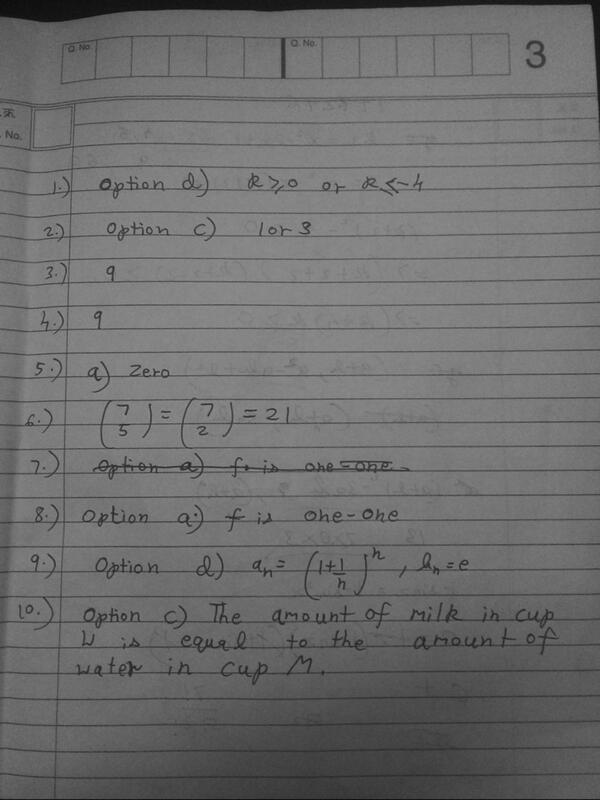 Q. No. Q. No. 3
No.
1.) Option d) k ≥ 0 or k ≤ -4
2.) Option c) 1 or 3
3.) 9
4.) 9
5.) a) Zero
6.) (7 5) = (7 2) = 21
7.) Option a) f is one-one
8.) Option a.) f is one-one
9.) Option d) aₙ = (1+1/n)ⁿ, bₙ = e
10.) Option c) The amount of milk in cup
W is equal to the amount of
water in cup M.